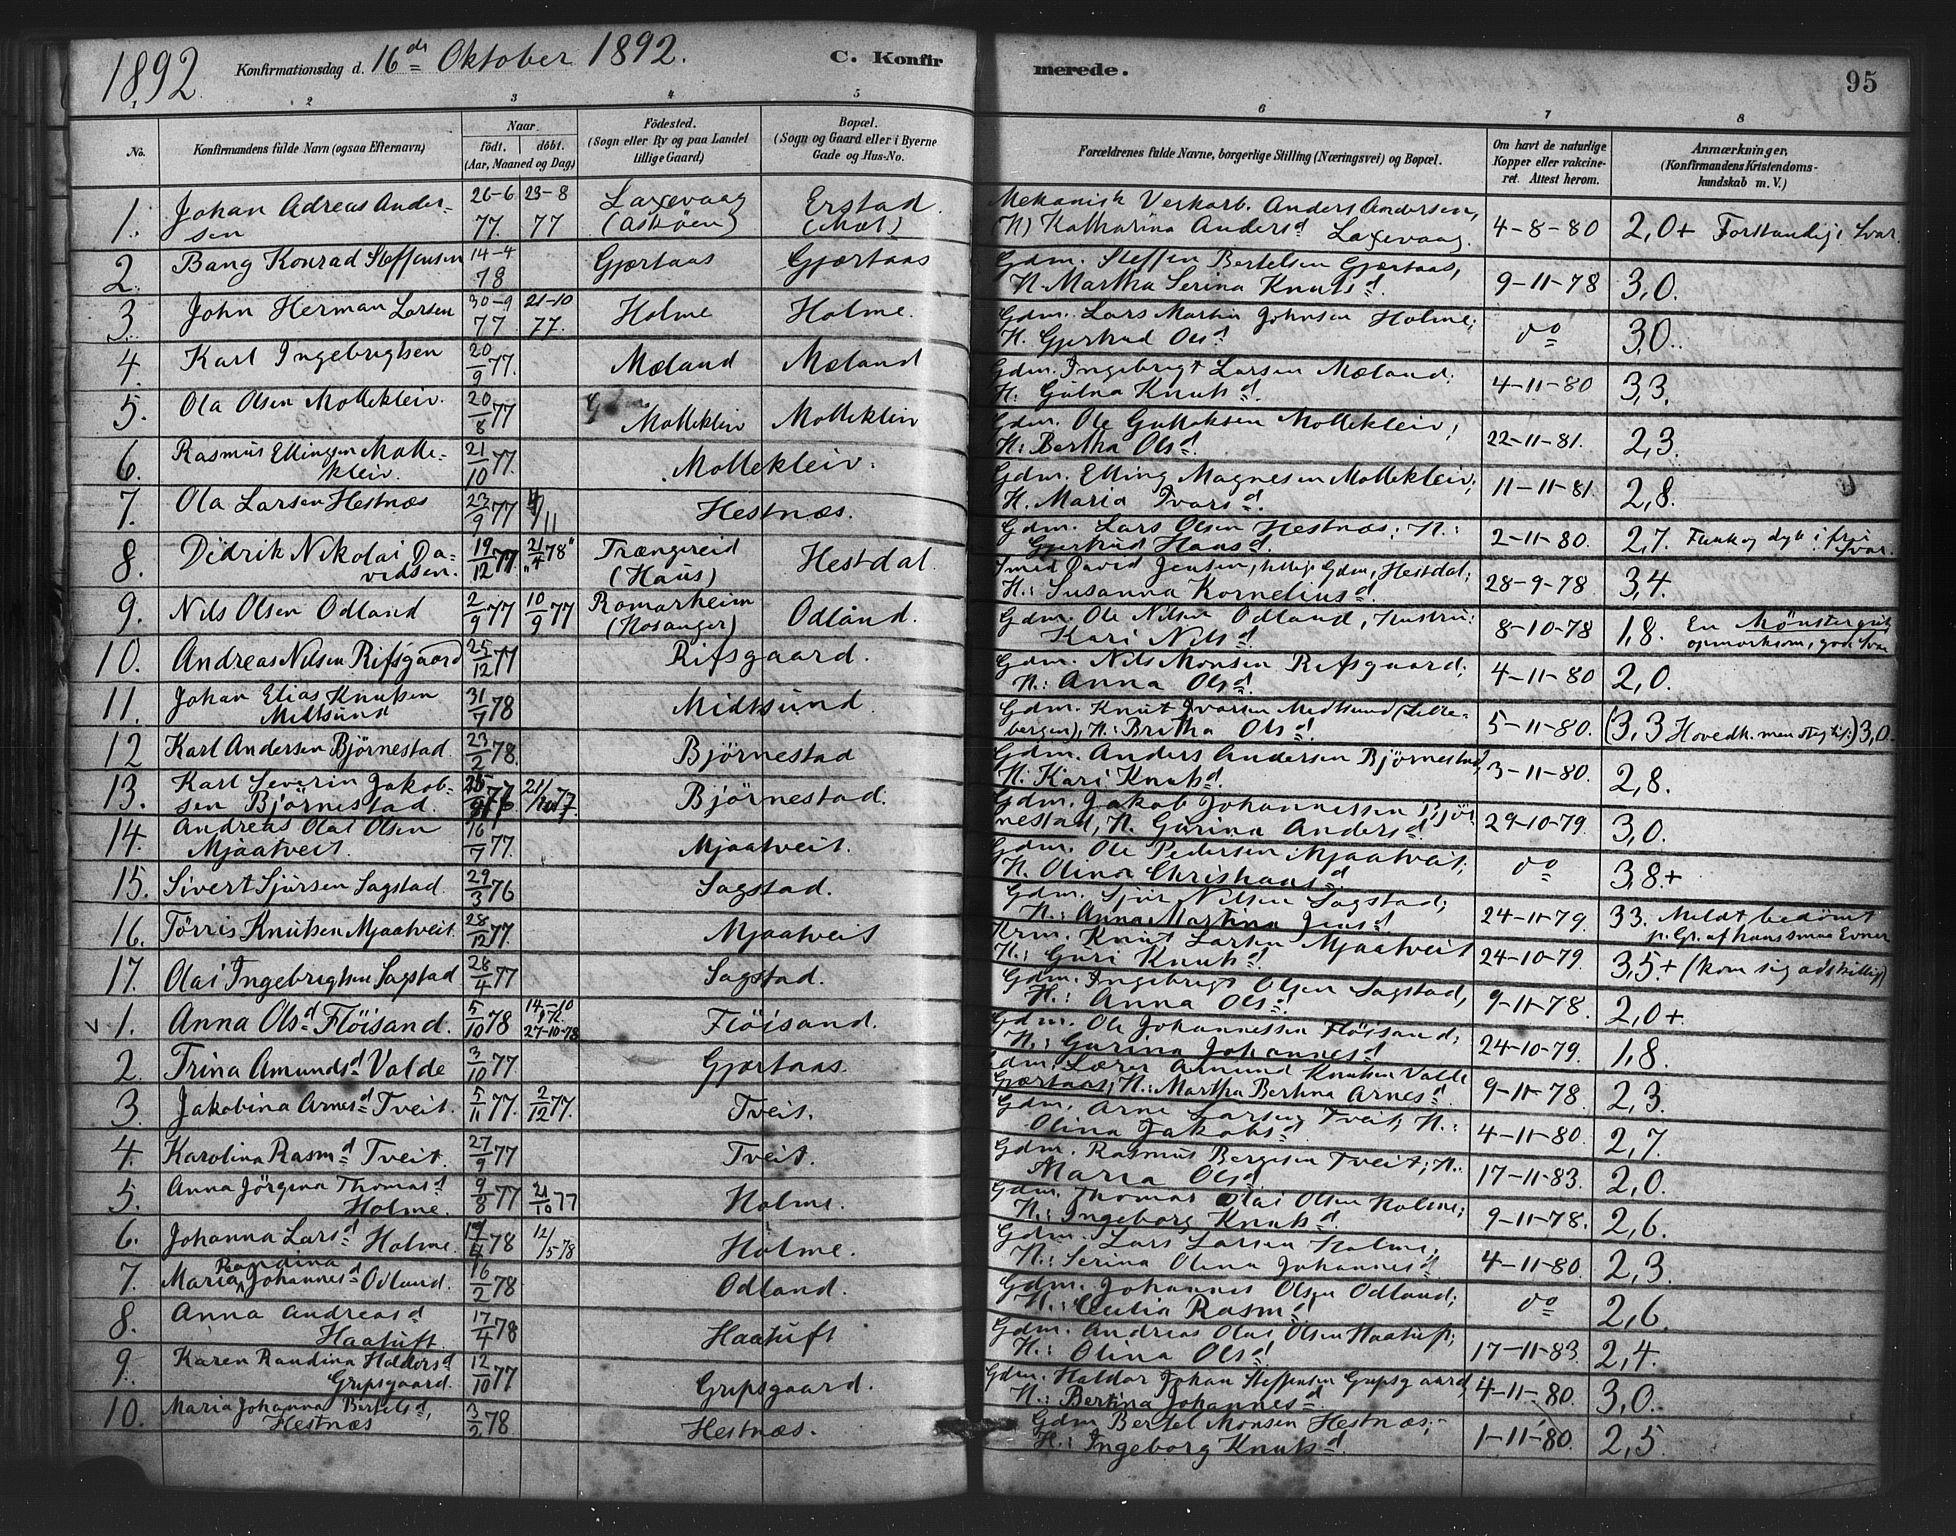 1892 Konfirmationsdag d. 16de Oktober 1892. C. Konfirmerede. 95
1 2 3 4 5 6 7 8
No. Konfirmandens fulde Navn (ogsaa Efternavn) Naar født. døbt. (Aar, Maaned og Dag) Fødested. (Sogn eller By og paa Landet tillige Gaard) Bopæl. (Sogn og Gaard eller i Byerne Gade og Hus-No.) Forældrenes fulde Navne, borgerlige Stilling (Næringsvei) og Bopæl. Om havt de naturlige Kopper eller vakcineret. Attest herom. Anmærkninger, (Konfirmandens Kristendomskundskab m. V.)
1. Johan Adreas Andersen 26-6 77. 23-8 77 Laxevaag (Askøen) Erstad (Mæl) Mekanisk Verkarb. Anders Andersen, (H) Katharina Andersd Laxevaag. 4-8-80 2,0+ Forstandige Svar.
2. Bang Konrad Steffensen 14-4 78 Gjærtaas Gjærtaas Gdm. Steffen Bertelsen Gjærtaas, H. Martha Serina Knutsd. 9-11-78 3,0.
3. John Herman Larsen 30-9 77 21-10 77. Holme Holme. Gdm. Lars Martin Johnsen Holme; H. Gjertrud Olsd. do 3,0.
4. Karl Ingebrigtsen 20/9 77. Mæland Mæland Gdm. Ingebrigt Larsen Mæland: H: Gutna Knutsd. 4-11-80 3,3.
5. Ola Olsen Molleklein. 20/8 77 Molleklein Molleklein Gdm. Ole Guttoksen Mollekleiv; H: Bertha Olsd. 22-11-81. 2,3.
6. Rasmus Ellingsen Mollekleiv. 21/10 77. Mollekleiv. Gdm. Elling Magnesen Mollekleiv; H. Maria Ivarsd. 11-11-81. 2,8.
7. Ola Larsen Hestnæs 23/9 77 4/11 Hestnæs. Gdm. Lars Olsen Hestnæs: H: Gjertrud Hansd. 2-11-80. 2,7. i frie Svar.
8. Didrik Nikolai Davidsen. 19/12 77 21/4 78 Trængereid (Haus) Hestdal Smed David Jensen, tillige Gdm, Hestdal; H.: Susanna Korneliusd. 28-9-78 3,4.
9. Nils Olsen Odland 2/9 77 10/9 77 Romarheim (Hosanger) Odland. Gdm. Ole Nilsen Odland, Hustru: Kari Nilsd. 8-10-78 1,8. En Mønstergut opmærksom, gode Svar
10. Andreas Nilsen Rifsgaard 25/12 77 Rifsgaard. Gdm. Nils Monsen Rifsgaard; H.: Anna Olsd. 4-11-80 2,0.
11. Johan Elias Knutsen Midtsund 31/7 78 Midtsund. Gdm. Knut Ivarsen Midtsund (Littlebergen), H.: Britha Olsd. 5-11-80. (3,3 Hovedk. men steg til:) 3,0.
12 Karl Andersen Bjørnestad. 23/2 78. Bjørnestad Gdm. Anders Andersen Bjørnestad, H. Kari Knutsd. 3-11-80. 2,8.
13. Karl Severin Jakobsen Bjørnestad. 21/10 77. Bjørnestad. Gdm. Jakob Johannessen Bjørnestad, H. Gurina Andersd. 29-10-79. 3,0.
14. Andreas Olai Olsen Mjaatveit. 16/7 77. Mjaatveit. Gdm. Ole Pedersen Mjaatveit; H. Olina Christiansd. do 3,8+
15. Sivert Sjursen Sagstad. 29/3 76 Sagstad. Gdm. Sjur Nilsen Sagstad; H.: Anna Martina Jensd. 24-11-79. 33. Mildt bedømt p. Gr. af hans smaa Evner
16. Tørris Knutsen Mjaatveit. 28/12 77. Mjaatveit Krm. Knut Larsen Mjaatveit H.: Guri Knutsd. 24-10-79. 3,5+ (kom sig adskillig)
17. Olai Ingebrigtsen Sagstad 28/4 77 Sagstad. Gdm. Ingebrigt Olsen Sagstad, H.: Anna Olsd. 9-11-78. 2,0+.
v 1. Anna Olsd Fløisand. 5/10 78 14-10 27-10-78 Fløisand. Gdm. Ole Johannessen Fløisand; H.: Gurina Johannesd. 24-10-79. 1,8
2. Trina Amundsd Valde 3/10 77 Gjærtaas. Gdm. Lærer Amund Knutsen Valde Gjærtaas; H.: Martha Bertina Arnesd. 9-11-78. 2,3.
3. Jakobina Arnesd Tveit. 5/11 77. 2/12 77. Tveit. Gdm. Arne Larsen Tveit, H.: Olina Jakobsd. 4-11-80. 2,7.
4. Karolina Rasmd Tveit. 27/9 77 Tveit. Gdm. Rasmus Bergesen Tveit; H.: Maria Olsd. 17-11-83. 2,0.
5. Anna Jørgina Thomasd Holme. 9/8 77 21/10 77 Holme. Gdm. Thomas Olai Olsen Holme; H.: Ingeborg Knutsd. 9-11-78. 2,6.
6. Johanna Larsd Holme. 78 12/5 78 Holme. Gdm. Lars Larsen Holme; H.: Serina Olina Johannesd 4-11-80. 2,3.
7. Maria Randina Johannesd Odland. 16/2 78 Odland. Gdm. Johannes Olsen Odland; H.: Cecilia Rasmd. do 2,6.
8. Anna Andreasd Haatuft. 17/4 78 Haatuft Gdm. Andreas Olai Olsen Haatuft; H.: Olina Olsd. 17-11-83. 2,4.
9. Karen Randina Haldorsd Gripsgaard. 12/10 77 Gripsgaard. Gdm. Haldor Johan Steffensen Gripsgaard, H.: Bertina Johannesd. 4-11-80. 3,0.
10. Maria Johanna Bertelsd, Hestnæs 3/2 78 Hestnæs. Gdm Bertel Monsen Hestnæs; H.: Ingeborg Knutsd. 1-11-80. 2,5